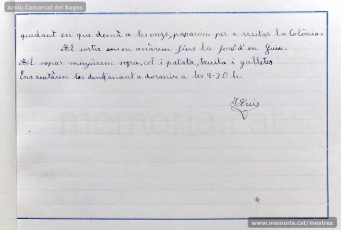 Arxiu Comarcal del Bages
quedant en que demà a les onze, passarem per a visitar la Colònia.
Al sortir ens en anàrem fins la font d'en Guiu.
Al sopar menjàrem sopa, col i patata, truita i galletes
Ens rentàrem les dents anant a dormir a les 9-30 h.
www.memoria.cat/mestres